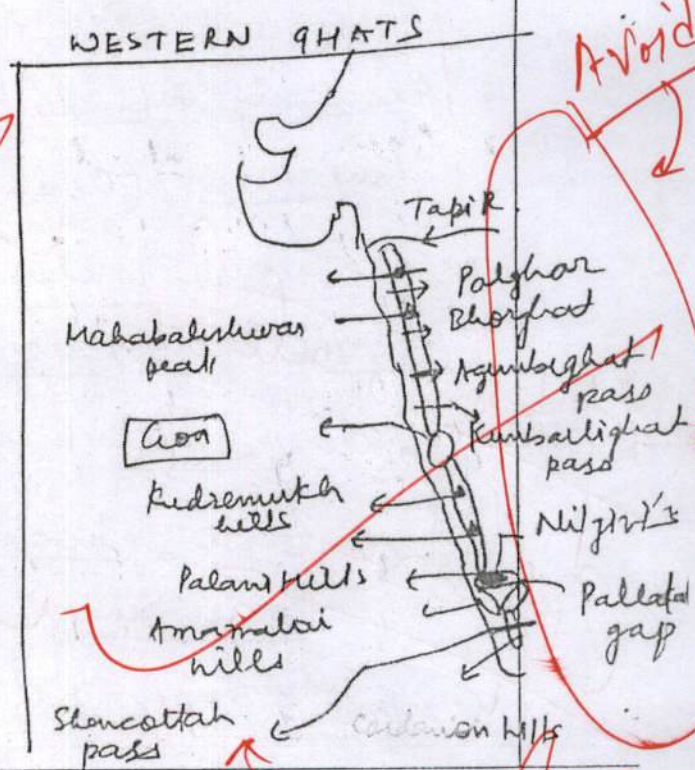 WESTERN GHATS
Avoid
Tapi R
Palghar
Bhorghat
Mahabaleshwar
peak
Agumbeghat
pass
Goa
Kumbarlighat
pass
Kudremukh
hills
Nilgiri's
Palani Hills
Pallakad
gap
Annamalai
hills
Shencottah
pass
Cardamon hills